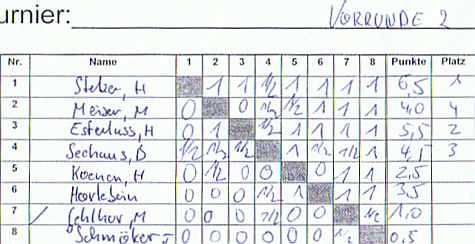 urnier: VORRUNDE 2
Nr. Name 1 2 3 4 5 6 7 8 Punkte Platz
1 Stelzer, H 1 1 1/2 1 1 1 1 6,5 1
2 Meiser, M 0 0 1/2 1/2 1 1 1 4,0 4
3 Esterluss, H 0 1 1/2 1 1 1 1 5,5 2
4 Seehaus, D 1/2 1/2 1/2 1 1/2 1/2 1 4,5 3
5 Koenen, H 0 1/2 0 0 0 1 1 2,5
6 0 0 0 1/2 1 1 1 3,5
7 M 0 0 0 1/2 0 0 1/2 1,0
8 Schmöker 0 0 0 0 0 0 1/2 0,5